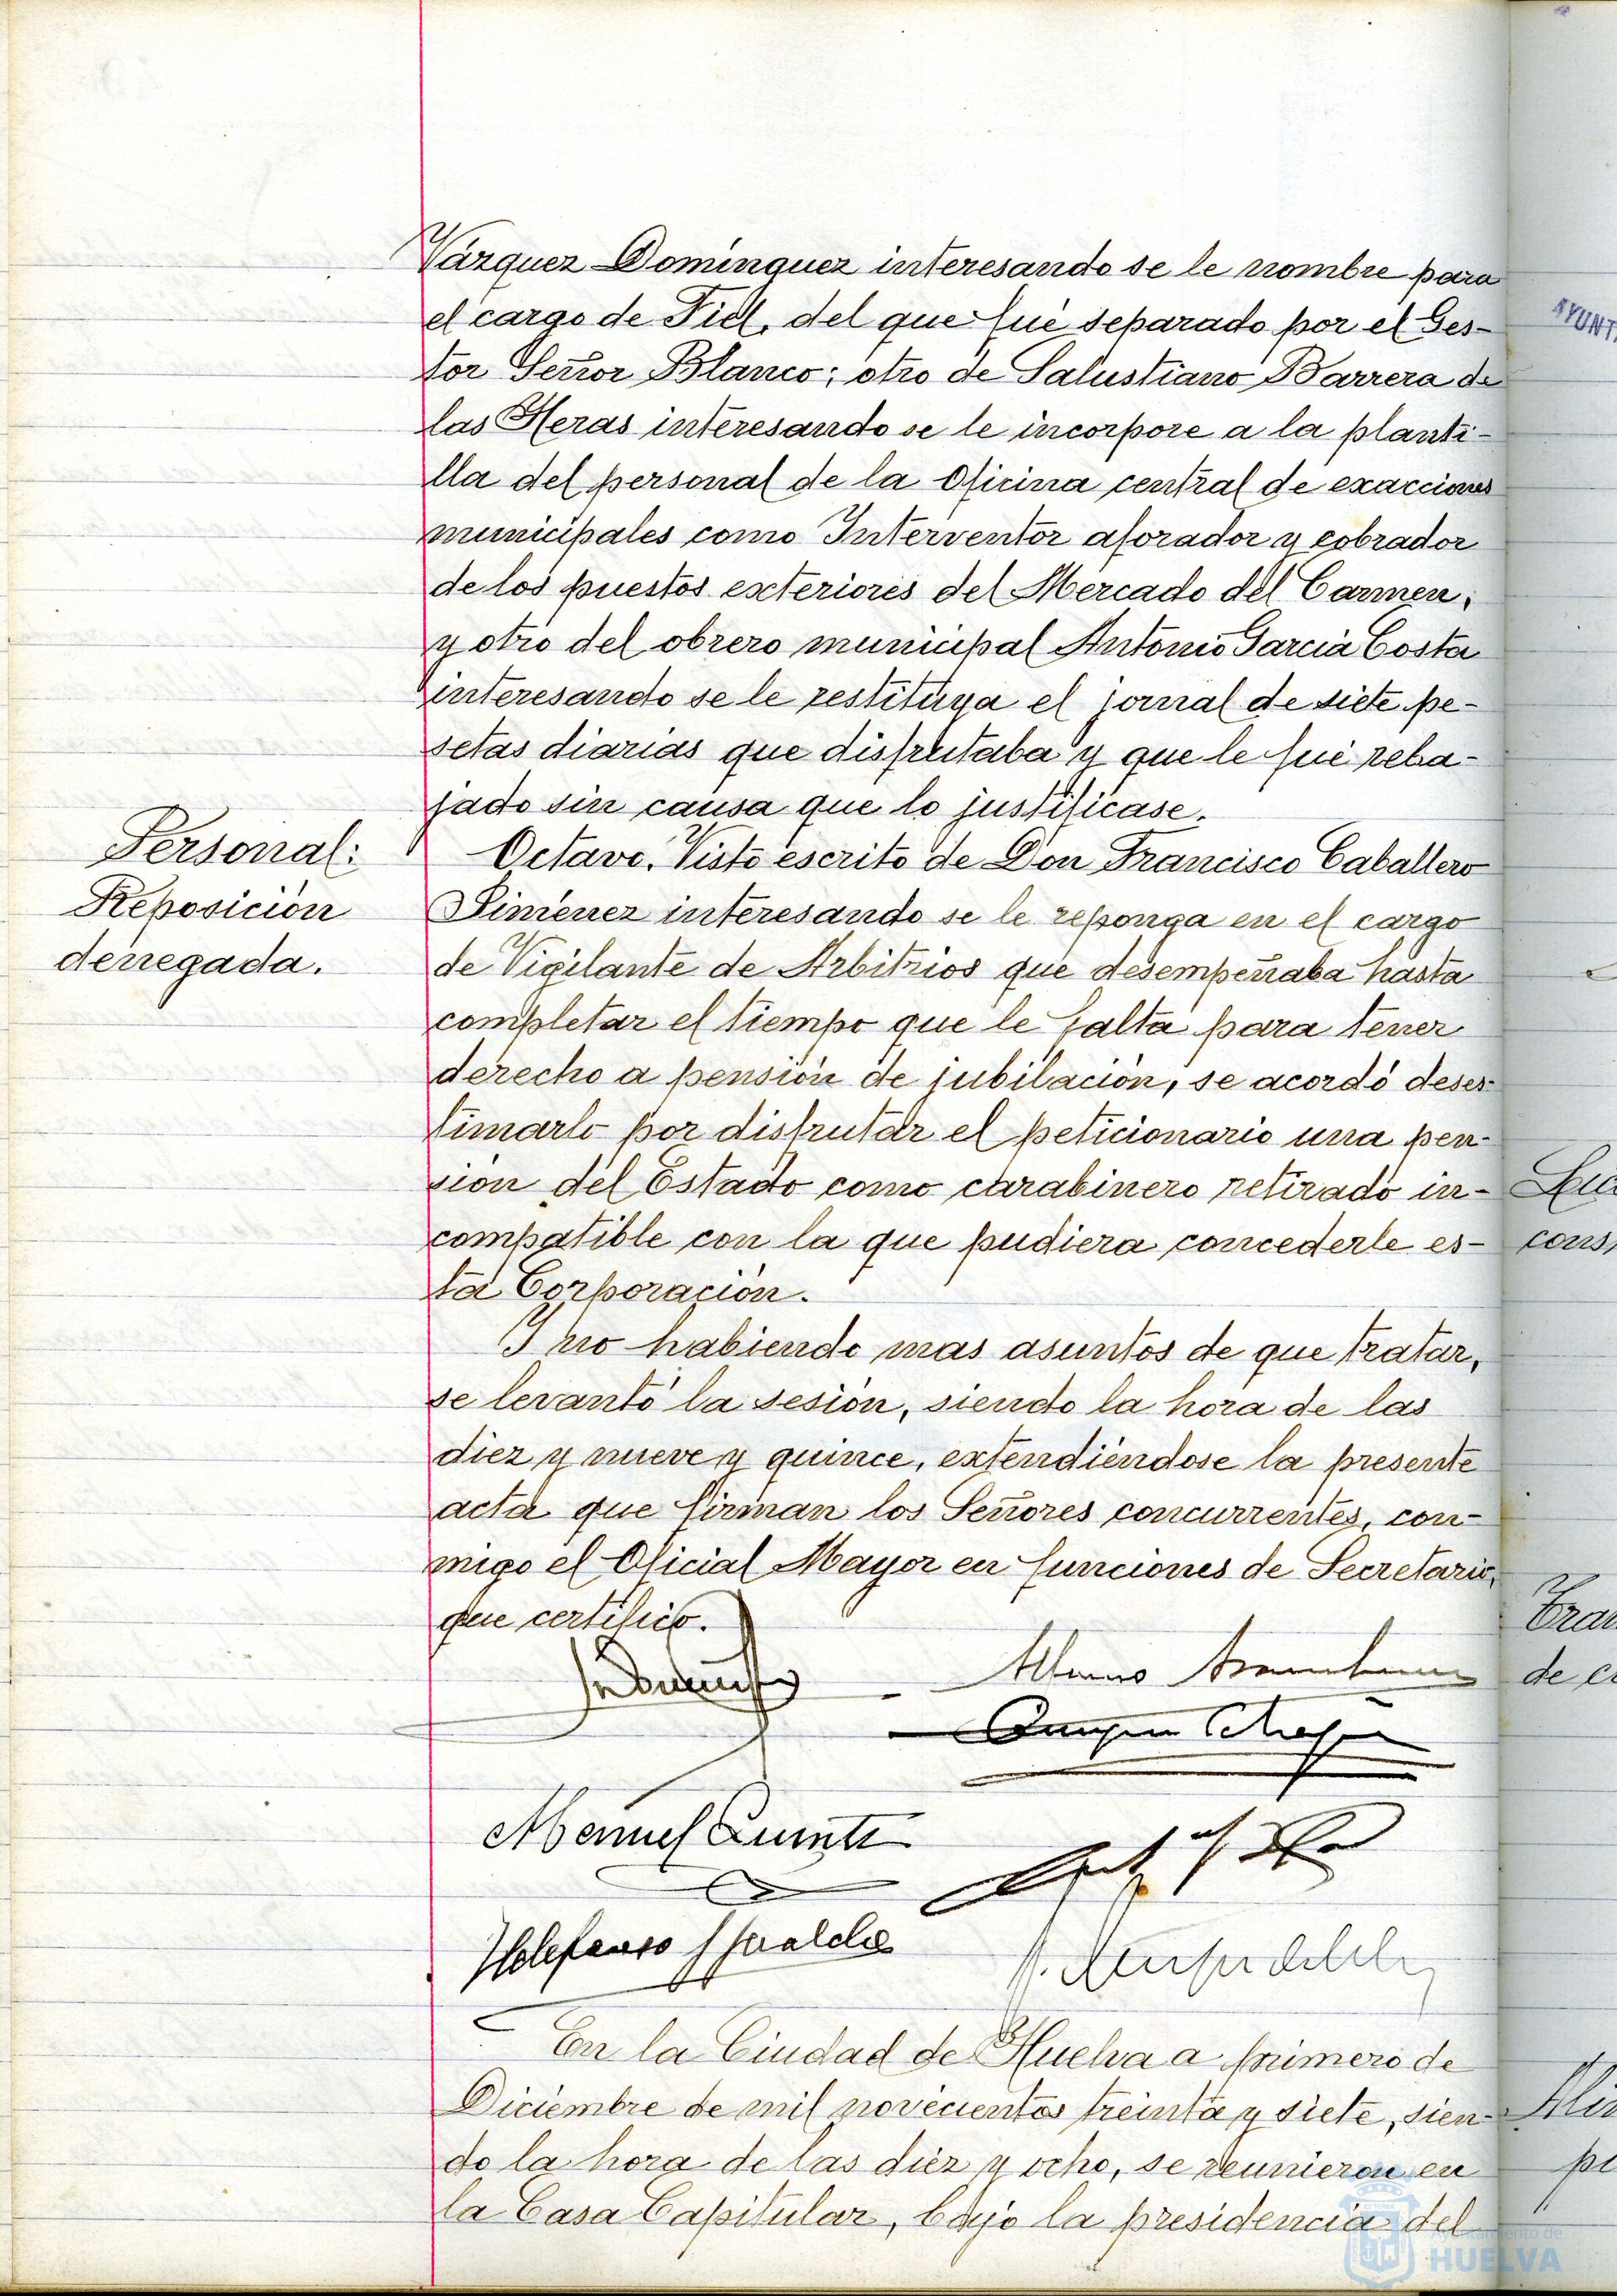 Vázquez Domínguez interesando se le nombre para
el cargo de Fiel, del que fué separado por el Ges-
tor Señor Blanco; otro de Salustiano Barrera de
las Heras interesando se le incorpore a la planti-
lla del personal de la Oficina central de exacciones
municipales como Interventor aforador y cobrador
de los puestos exteriores del Mercado del Carmen;
y otro del obrero municipal Antonio García Costa
interesando se le restituya el jornal de siete pe-
setas diarias que disfrutaba y que le fué reba-
jado sin causa que lo justificase.
Personal:
Reposición
denegada.
Octavo. Visto escrito de Don Francisco Caballero
Siménez interesando se le reponga en el cargo
de Vigilante de Arbitrios que desempeñaba hasta
completar el tiempo que le falta para tener
derecho a pensión de jubilación, se acordó deses-
timarlo por disfrutar el peticionario una pen-
sión del Estado como carabinero retirado in-
compatible con la que pudiera concederle es-
ta Corporación.
Y no habiendo mas asuntos de que tratar,
se levantó la sesión, siendo la hora de las
diez y nueve y quince, extendiéndose la presente
acta que firman los Señores concurrentes, con-
migo el Oficial Mayor en funciones de Secretario,
que certifico.
Manuel
Ildefonso
En la Ciudad de Huelva a primero de
Diciembre de mil novecientos treinta y siete, sien-
do la hora de las diez y ocho, se reunieron en
la Casa Capitular, bajo la presidencia del
AYUNT
cons
de
Ayuntamiento de
HUELVA